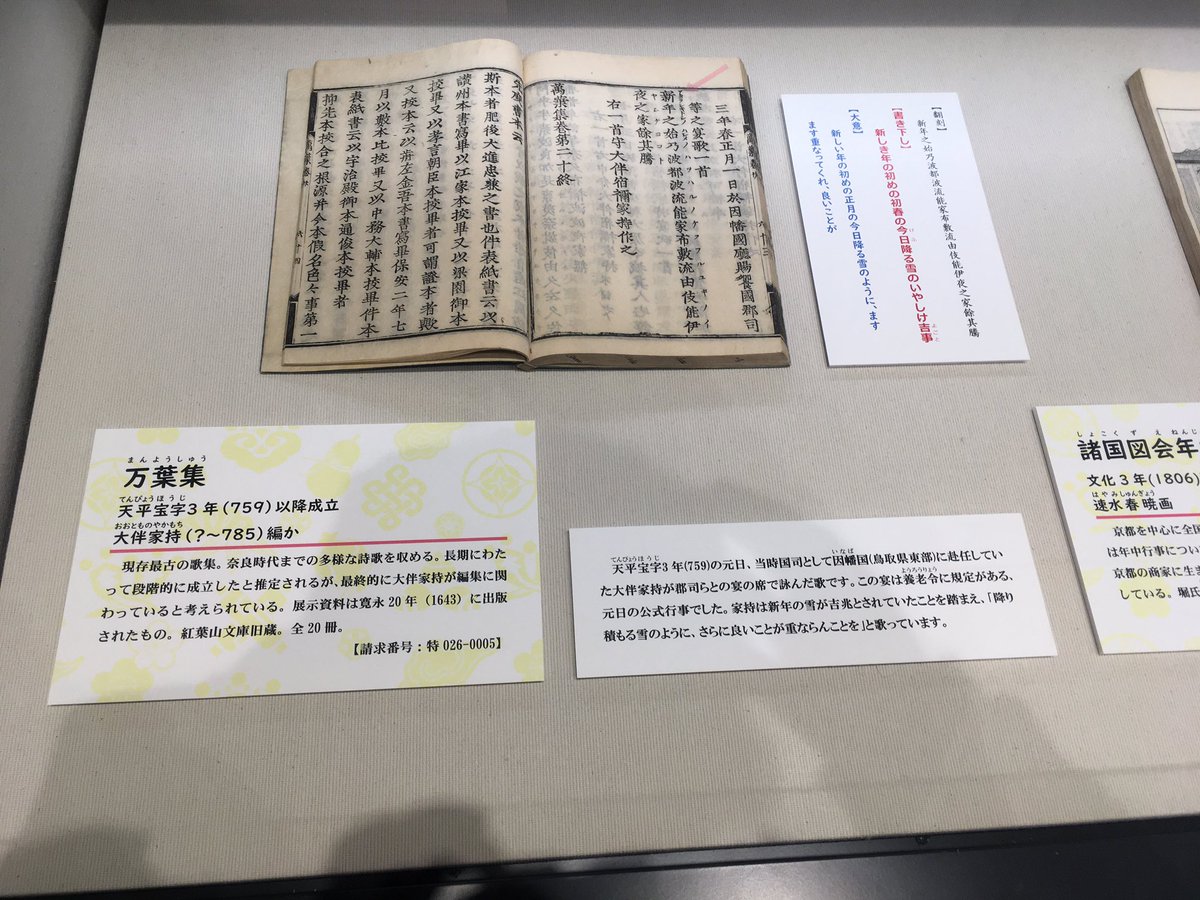 三年春正月一日於因幡國廳賜饗國郡司
等之宴歌一首
新年之始乃波都波流能家布敷流由伎能伊
夜之家餘其騰
右一首守大伴宿禰家持作之
萬葉集卷第二十終
斯本者肥後大進忠兼之書也件表紙書云以
讃州本書寫畢以江家本挍畢又以梁園御本
挍畢又以孝言朝臣本挍畢者可謂證本者歟
又挍本云以前左金吾本書寫畢保安二年七
月以數本比挍畢又以中務大輔本挍畢件本
表紙書云以宇治殿御本通俊本挍畢者
抑先本挍合之根源并今本假名色々事第一
六十四
【翻刻】
新年之始乃波都波流能家布敷流由伎能伊夜之家餘其騰
【書き下し】
新しき年の初めの初春の今日降る雪のいやしけ吉事
けふ
よごと
【大意】
新しい年の初めの正月の今日降る雪のように、ます
ます重なってくれ、良いことが
まんようしゅう
万葉集
てんぴょうほうじ
天平宝字3年(759)以降成立
おおとものやかもち
大伴家持(?～785)編か
現存最古の歌集。奈良時代までの多様な詩歌を収める。長期にわた
って段階的に成立したと推定されるが、最終的に大伴家持が編集に関
わっていると考えられている。展示資料は寛永20年(1643)に出版
されたもの。紅葉山文庫旧蔵。全20冊。
【請求番号:特026-0005】
てんぴょうほうじ
いなば
天平宝字3年(759)の元日、当時国司として因幡国(鳥取県東部)に赴任してい
ようろうりょう
た大伴家持が郡司らとの宴の席で詠んだ歌です。この宴は養老令に規定がある、
元日の公式行事でした。家持は新年の雪が吉兆とされていたことを踏まえ、「降り
積もる雪のように、さらに良いことが重ならんことを」と歌っています。
しょこくずえねんじ
諸国図会年
文化3年(1806)
はやみしゅんぎょう
速水春暁画
京都を中心に全国
は年中行事につい
京都の商家に生ま
している。堀氏